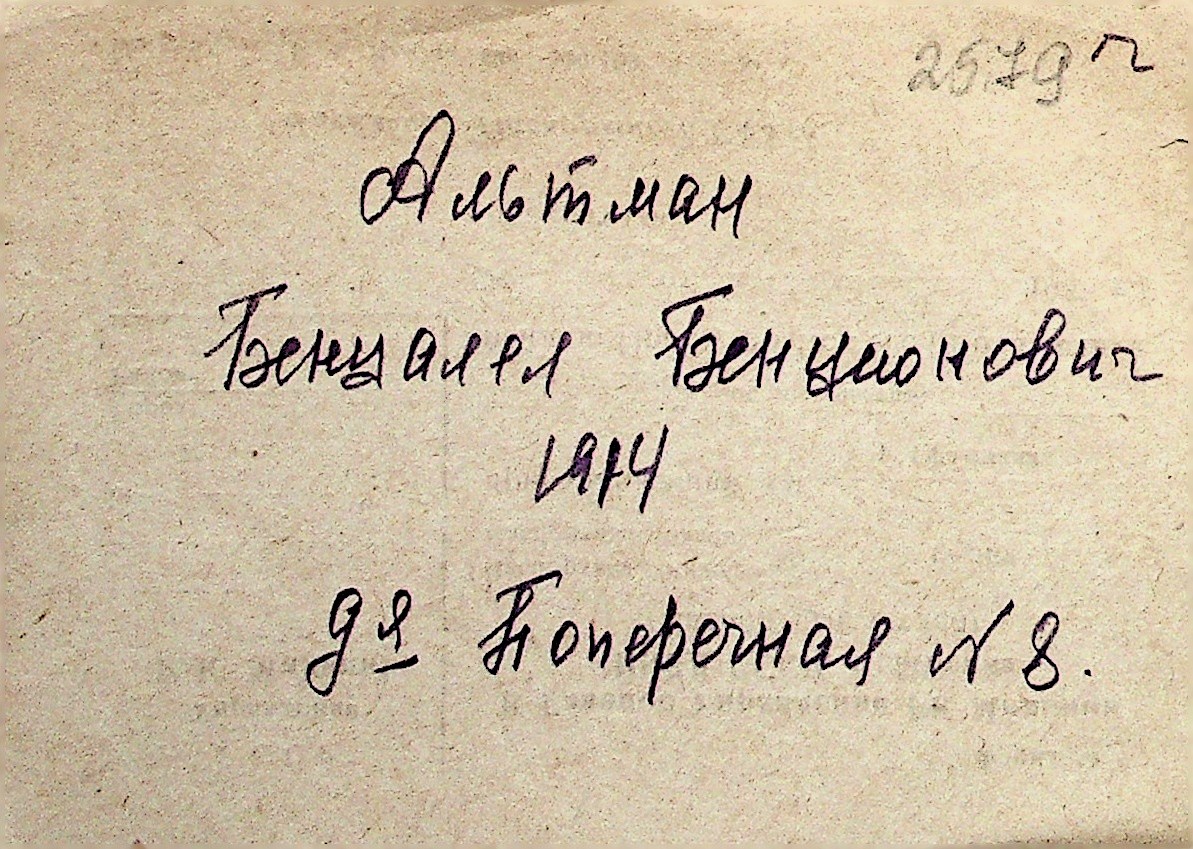 2579 г
Альтман
Бенцалел Бенционович
1914
9я Поперечная № 8.